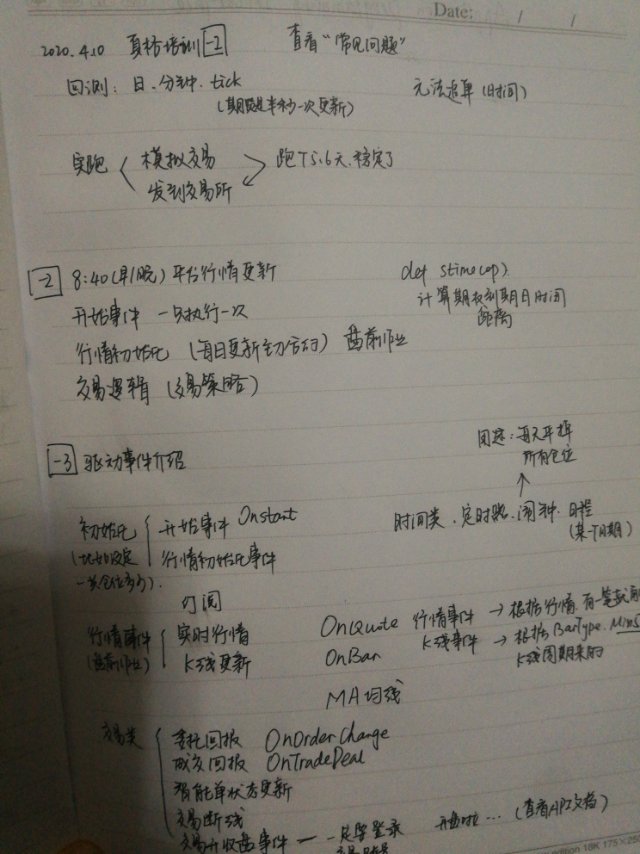 Date: / /
2020.4.10 真格培训 -2 查看“常见问题”
回测：日、分钟、tick 无法追单(时间)
(期货是半秒一次更新)
实跑 模拟交易 跑个5.6天、稳定了
发到交易所
-2 8:40(早/晚) 平台行情更新 def stime(op)
开始事件 一只执行一次 计算期权到期日时间
距离
行情初始化 (每日更新主力合约) 盘前作业
交易逻辑 (交易策略)
-3 驱动事件介绍
闭窗：每天平掉
所有仓位
初始化 开始事件 Onstart 时间类、定时器、闹钟、日程
(某一个日期)
(比如设定 行情初始化事件
一共仓位多少).
订阅
行情事件 实时行情 OnQuote 行情事件 → 根据行情、有一笔就
(盘前作业) K线更新 OnBar K线事件 → 根据 BarType、Min5
K线周期来的
MA均线
交易类 委托回报 OnOrderChange
成交回报 OnTradeDeal
智能单状态更新
交易断线
交易开收盘事件 — 一定要登录 开盘啦… (查看API文档)
edition 18K 175×25